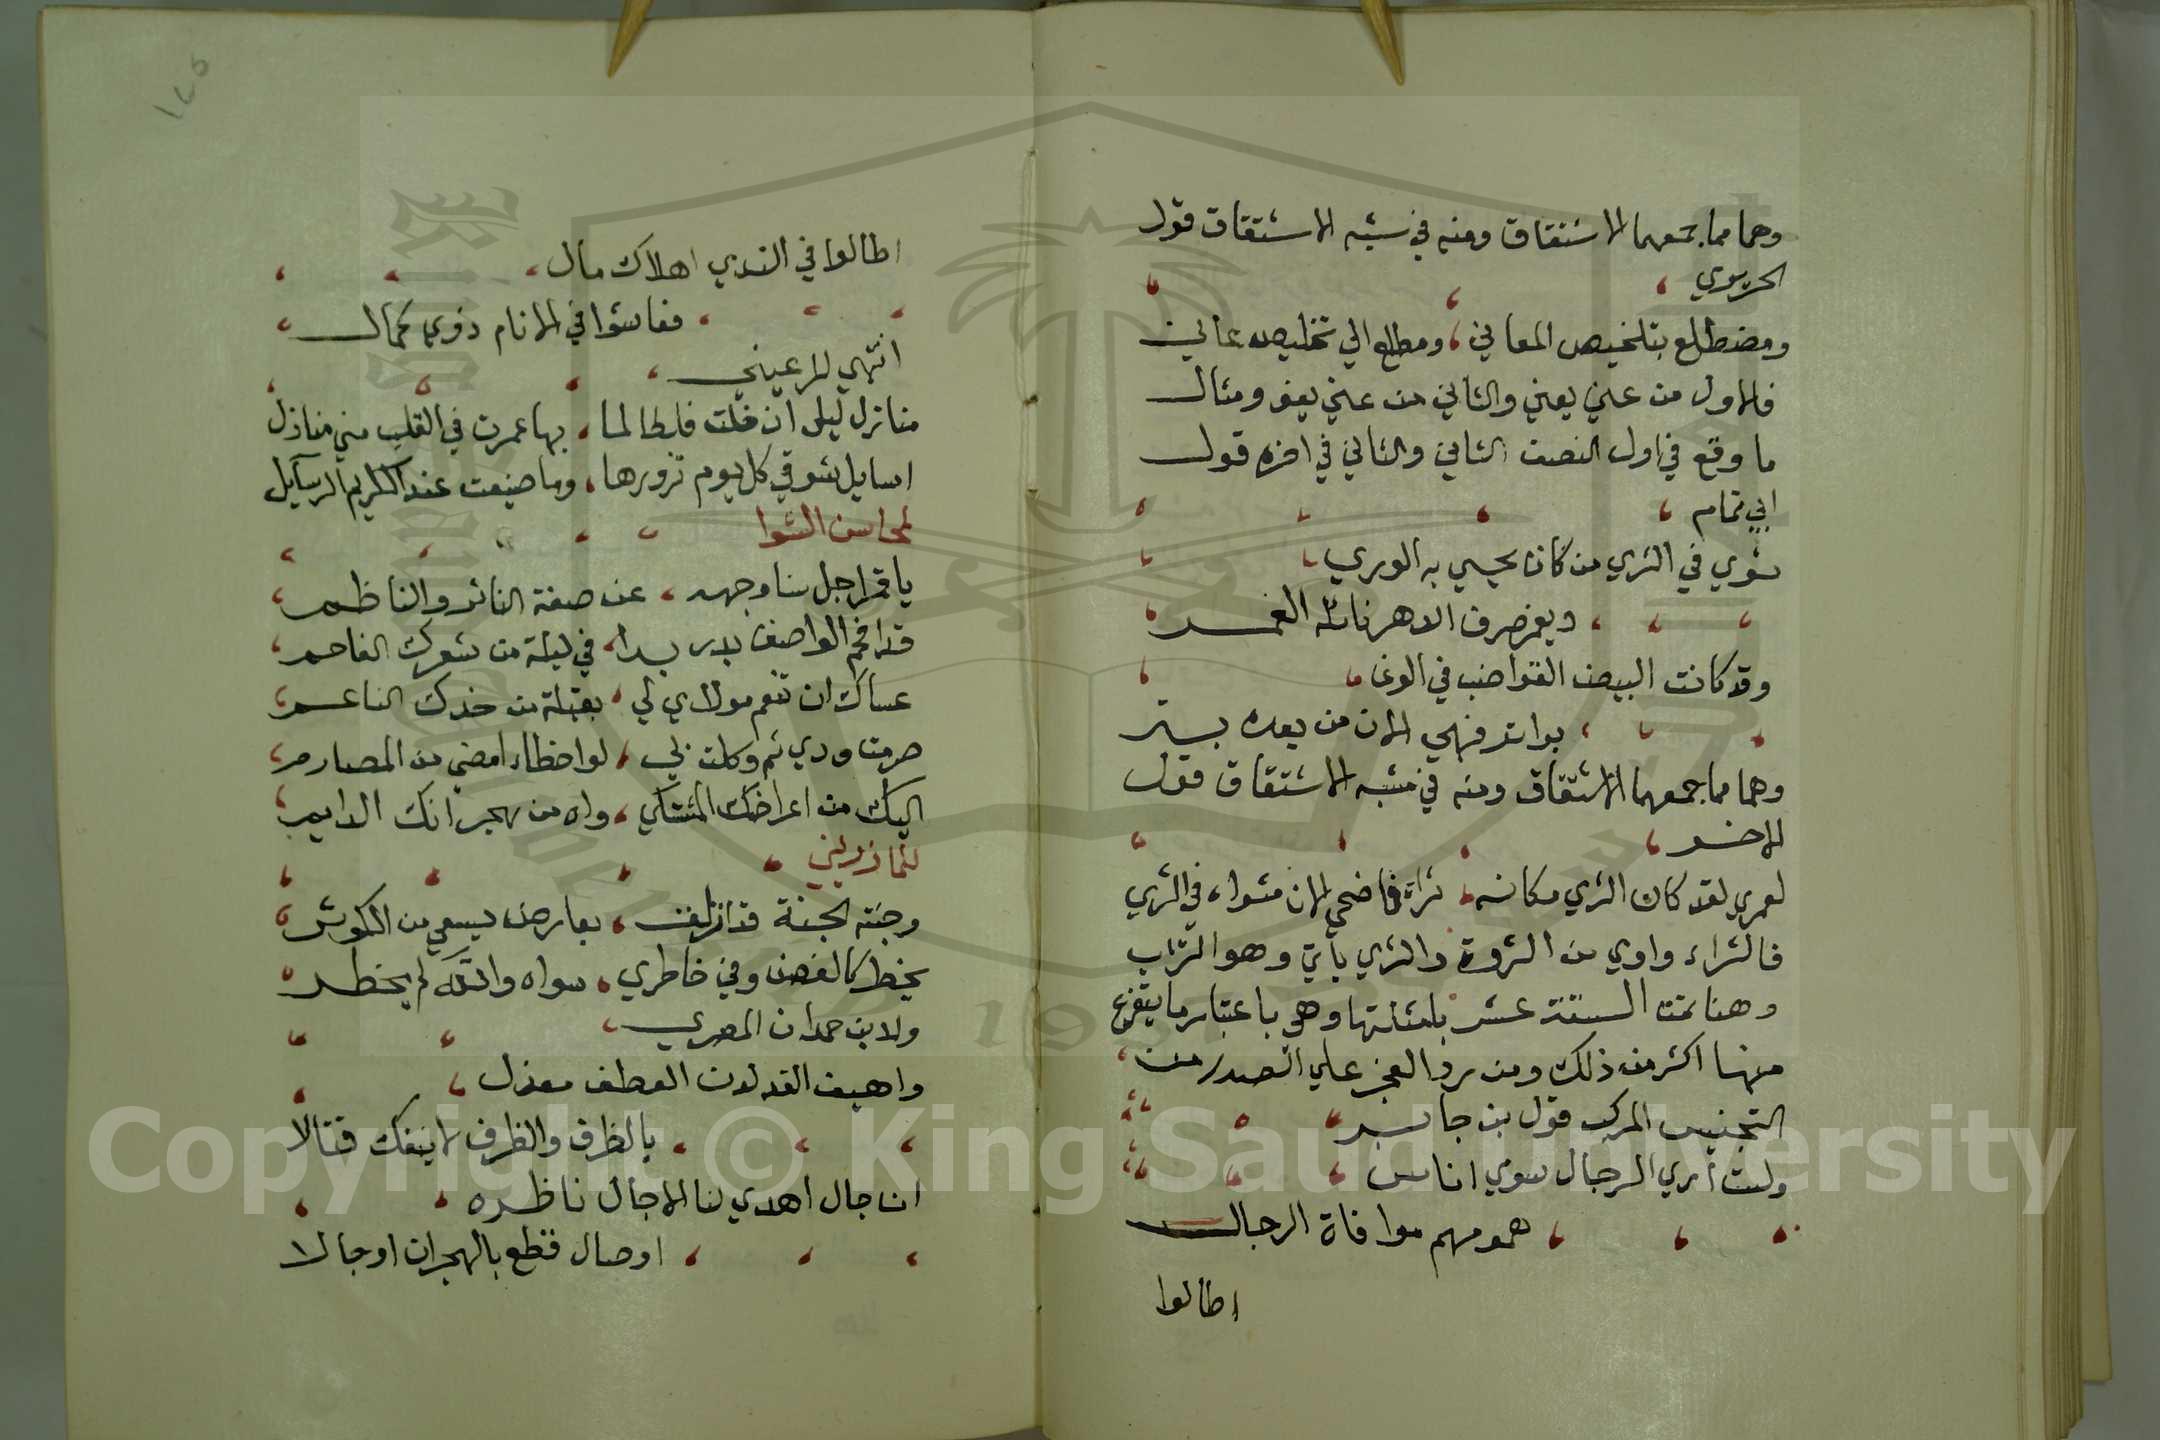 وهما مما جمعهما الاشتقاق ومنه في شبه الاشتقاق قول
الحريري
ومضطلع بتلخيص المعاني ومطلع الي تخليص عاني
فالاول من عني يعني والثاني من عني يعنو ومثال
ما وقع في اول النصف الثاني والثاني في اخره قول
ابي تمام
ثوي في الثري من كان يحيي به الوري
ويغمر صرف الدهر نائله الغمر
وقد كانت البيض القواضب في الوغا
بواتر فهي الان من بعده بتر
وهما مما جمعهما الاشتقاق ومنه في مشبه الاشتقاق قول
الاخر
لعمري لقد كان الثري مكانه ثراء فاضحي الان مثواه في الثري
فالثراء واوي من الثروة والثري يأتي وهو التراب
وهنا تمت الستة عشر بامثلتها وهي باعتبار ما يتفرع
منها اكثر من ذلك ومن رد العجز علي الصدر من
التجنيس المركب قول بن جابر
ولست أري الرجال سوي اناس
همومهم موافاة الرجال
اطالوا
١٤٥
اطالوا في الندي اهلاك مال
فعاشوا في الانام ذوي كمال
انتهي للرعيني
منازل ليلي ان خلت فلطالما بها عمرت في القلب مني منازل
اسايل شوقي كل يوم تزورها وما ضيعت عند الكريم الرسآيل
لمحاسن الشوا
يا قمرا جل سنا وجهه عن صفة الناثر والناظم
قد افحم الواصف بدر بدا في ليلة من شعرك الفاحم
عساك ان تنعم مولاي لي بقبلة من خدك الناعم
صرمت ودي ثم وكلت بي لواحظا امضي من الصارم
اليك من اعراضك المشتكي واه من هجرانك الدايم
للمازديني
وجنته الجنة قد ازلفت بعارض يسعي من الكوثر
يخطر كالغصن وفي خاطري سواه والله لم يخطر
ولابن حمدان المصري
واهيف القد لدن العطف معتدل
بالطرف والظرف لا ينفك قتالا
ان جال اهدي لنا الاجال ناظره
اوصال قطع بالهجران اوجالا
Copyright © King Saud University